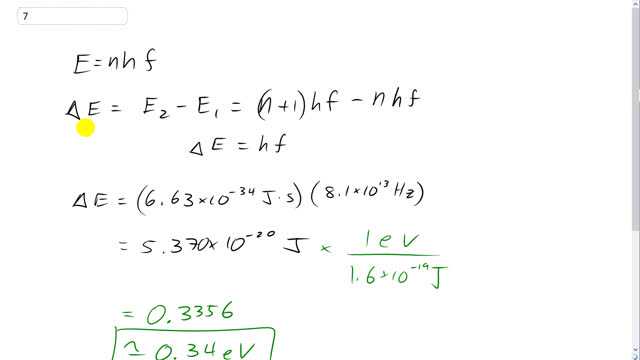 7
E = nhf
ΔE = E₂ − E₁ = (n+1)hf − nhf
ΔE = hf
ΔE = (6.63×10⁻³⁴ J·s)(8.1×10¹³ Hz)
= 5.370×10⁻²⁰ J × 1 eV / 1.6×10⁻¹⁹ J
= 0.3356
≃ 0.34 eV